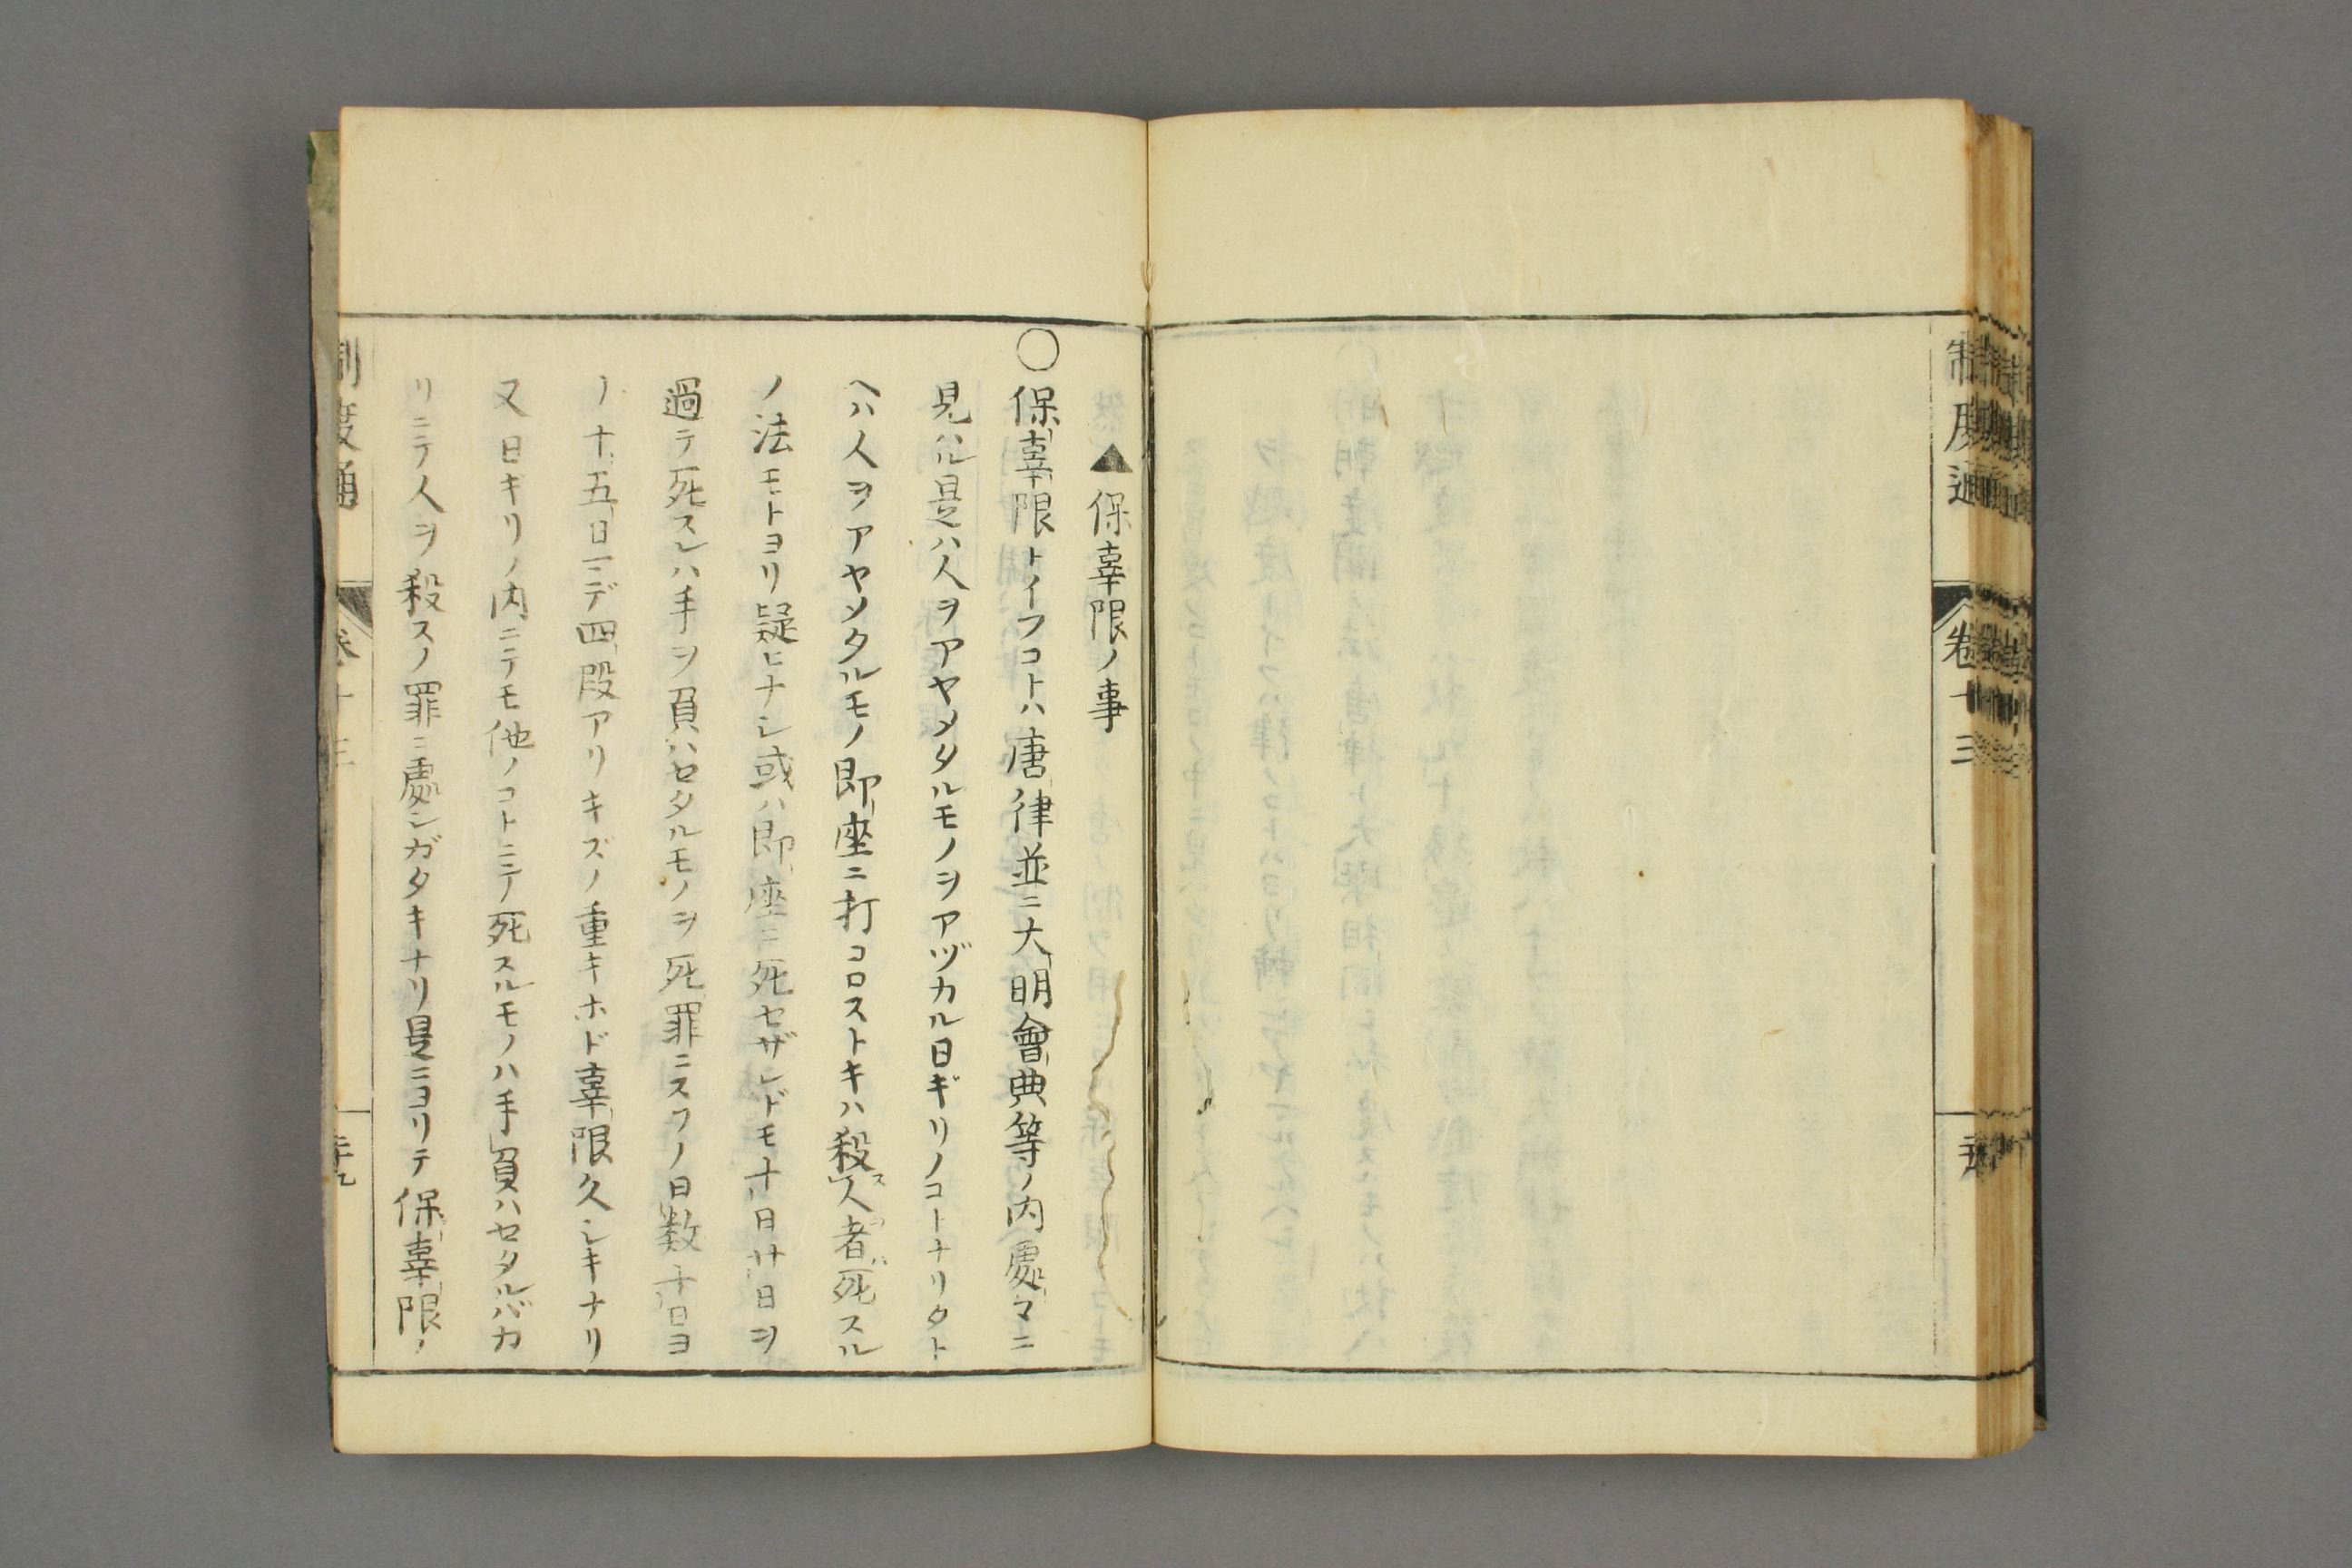 制度通
卷十三
▲保辜限ノ事
○保辜限トイフコトハ唐律並ニ大明會典等ノ内處々ニ
見ハル是ハ人ヲアヤメタルモノヲアヅカル日ギリノコトナリタト
ヘハ人ヲアヤメタルモノ即座ニ打コロストキハ殺ス人ヲ者ハ死スル
ノ法モトヨリ疑ヒナシ或ハ即座ニ死セザレドモ十日廿日ヲ
過テ死スレハ手ヲ負ハセタルモノヲ死罪ニスソノ日数十日ヨ
リ十五日ニデ四段アリキズノ重キホド辜限久シキナリ
又日ギリノ内ニテモ他ノコトニテ死スルモノハ手負ハセタルバカ
リニテ人ヲ殺スノ罪ニ處シガタキナリ是ニヨリテ保辜限ノ
制度通
卷十三